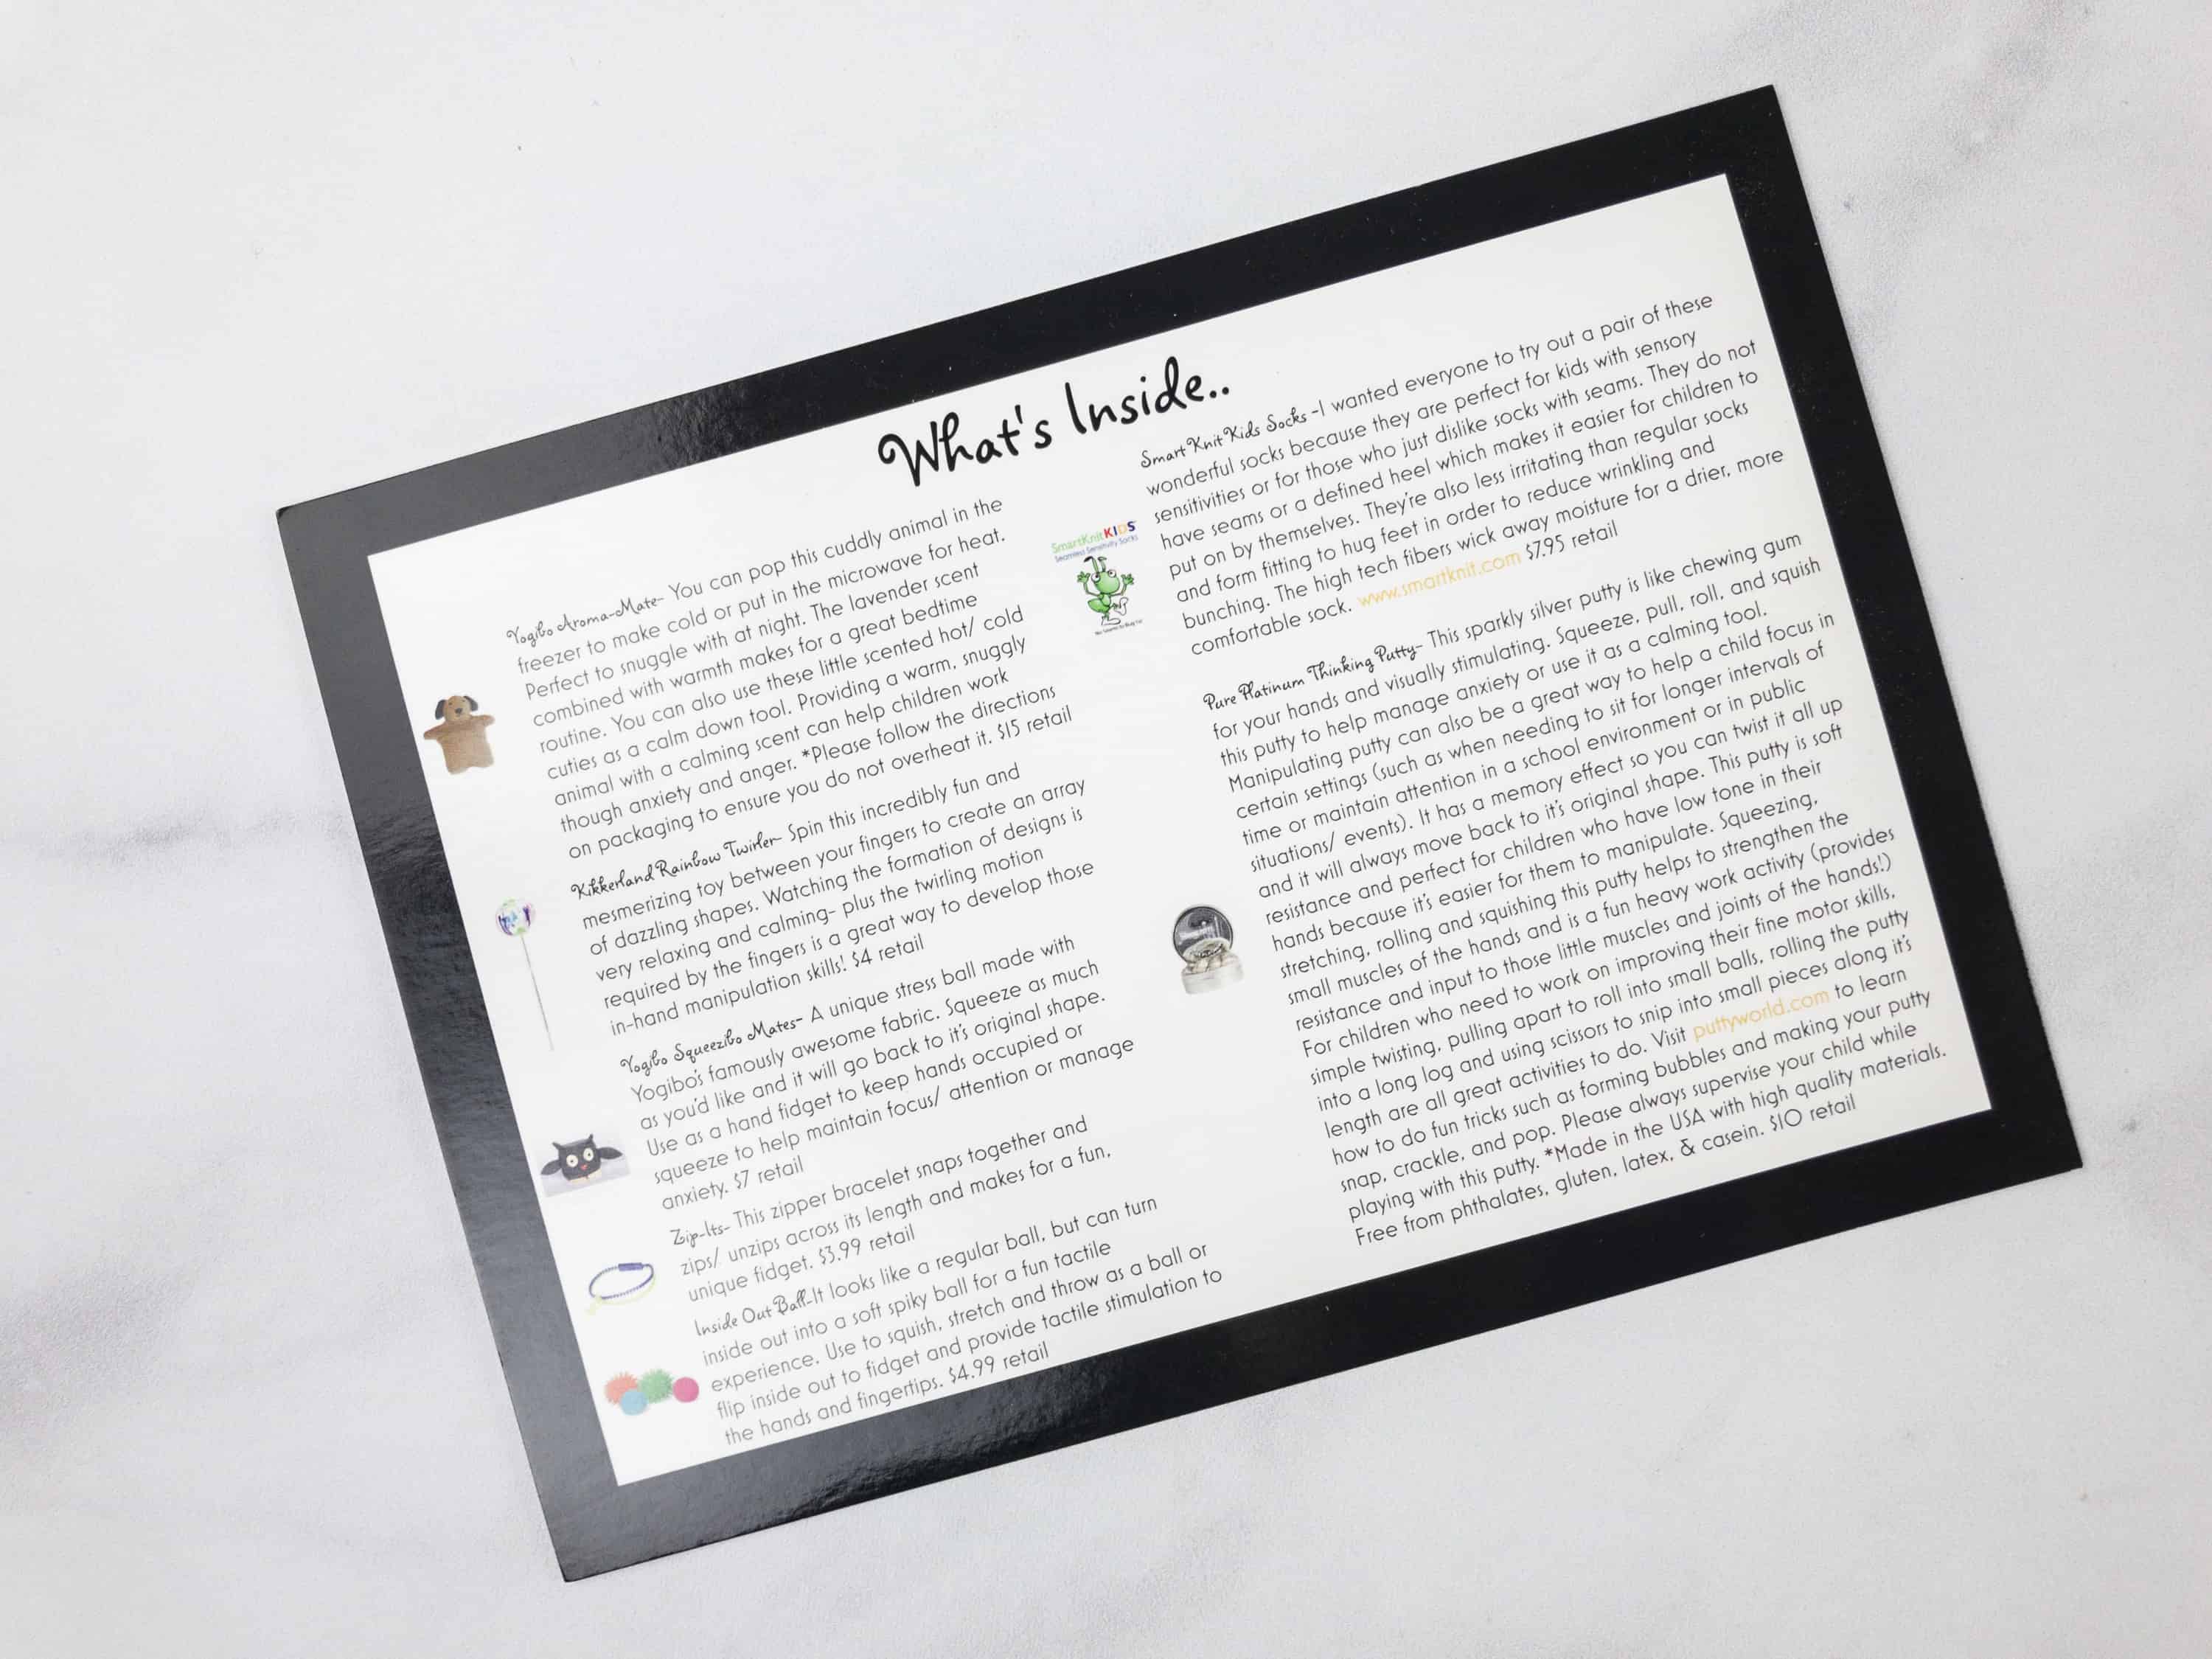 What's Inside..
Yogibo Aroma-Mate- You can pop this cuddly animal in the
freezer to make cold or put in the microwave for heat.
Perfect to snuggle with at night. The lavender scent
combined with warmth makes for a great bedtime
routine. You can also use these little scented hot/ cold
cuties as a calm down tool. Providing a warm, snuggly
animal with a calming scent can help children work
though anxiety and anger. *Please follow the directions
on packaging to ensure you do not overheat it. $15 retail
Kikkerland Rainbow Twirler- Spin this incredibly fun and
mesmerizing toy between your fingers to create an array
of dazzling shapes. Watching the formation of designs is
very relaxing and calming- plus the twirling motion
required by the fingers is a great way to develop those
in-hand manipulation skills! $4 retail
Yogibo Squeezibo Mates- A unique stress ball made with
Yogibo's famously awesome fabric. Squeeze as much
as you'd like and it will go back to it's original shape.
Use as a hand fidget to keep hands occupied or
squeeze to help maintain focus/ attention or manage
anxiety. $7 retail
Zip-Its- This zipper bracelet snaps together and
zips/ unzips across its length and makes for a fun,
unique fidget. $3.99 retail
Inside Out Ball-It looks like a regular ball, but can turn
inside out into a soft spiky ball for a fun tactile
experience. Use to squish, stretch and throw as a ball or
flip inside out to fidget and provide tactile stimulation to
the hands and fingertips. $4.99 retail
SmartKnitKIDS
Seamless Sensitivity Socks
Smart Knit Kids Socks -I wanted everyone to try out a pair of these
wonderful socks because they are perfect for kids with sensory
sensitivities or for those who just dislike socks with seams. They do not
have seams or a defined heel which makes it easier for children to
put on by themselves. They're also less irritating than regular socks
and form fitting to hug feet in order to reduce wrinkling and
bunching. The high tech fibers wick away moisture for a drier, more
comfortable sock. www.smartknit.com $7.95 retail
Pure Platinum Thinking Putty- This sparkly silver putty is like chewing gum
for your hands and visually stimulating. Squeeze, pull, roll, and squish
this putty to help manage anxiety or use it as a calming tool.
Manipulating putty can also be a great way to help a child focus in
certain settings (such as when needing to sit for longer intervals of
time or maintain attention in a school environment or in public
situations/ events). It has a memory effect so you can twist it all up
and it will always move back to it's original shape. This putty is soft
resistance and perfect for children who have low tone in their
hands because it's easier for them to manipulate. Squeezing,
stretching, rolling and squishing this putty helps to strengthen the
small muscles of the hands and is a fun heavy work activity (provides
resistance and input to those little muscles and joints of the hands!)
For children who need to work on improving their fine motor skills,
simple twisting, pulling apart to roll into small balls, rolling the putty
into a long log and using scissors to snip into small pieces along it's
length are all great activities to do. Visit puttyworld.com to learn
how to do fun tricks such as forming bubbles and making your putty
snap, crackle, and pop. Please always supervise your child while
playing with this putty. *Made in the USA with high quality materials.
Free from phthalates, gluten, latex, & casein. $10 retail